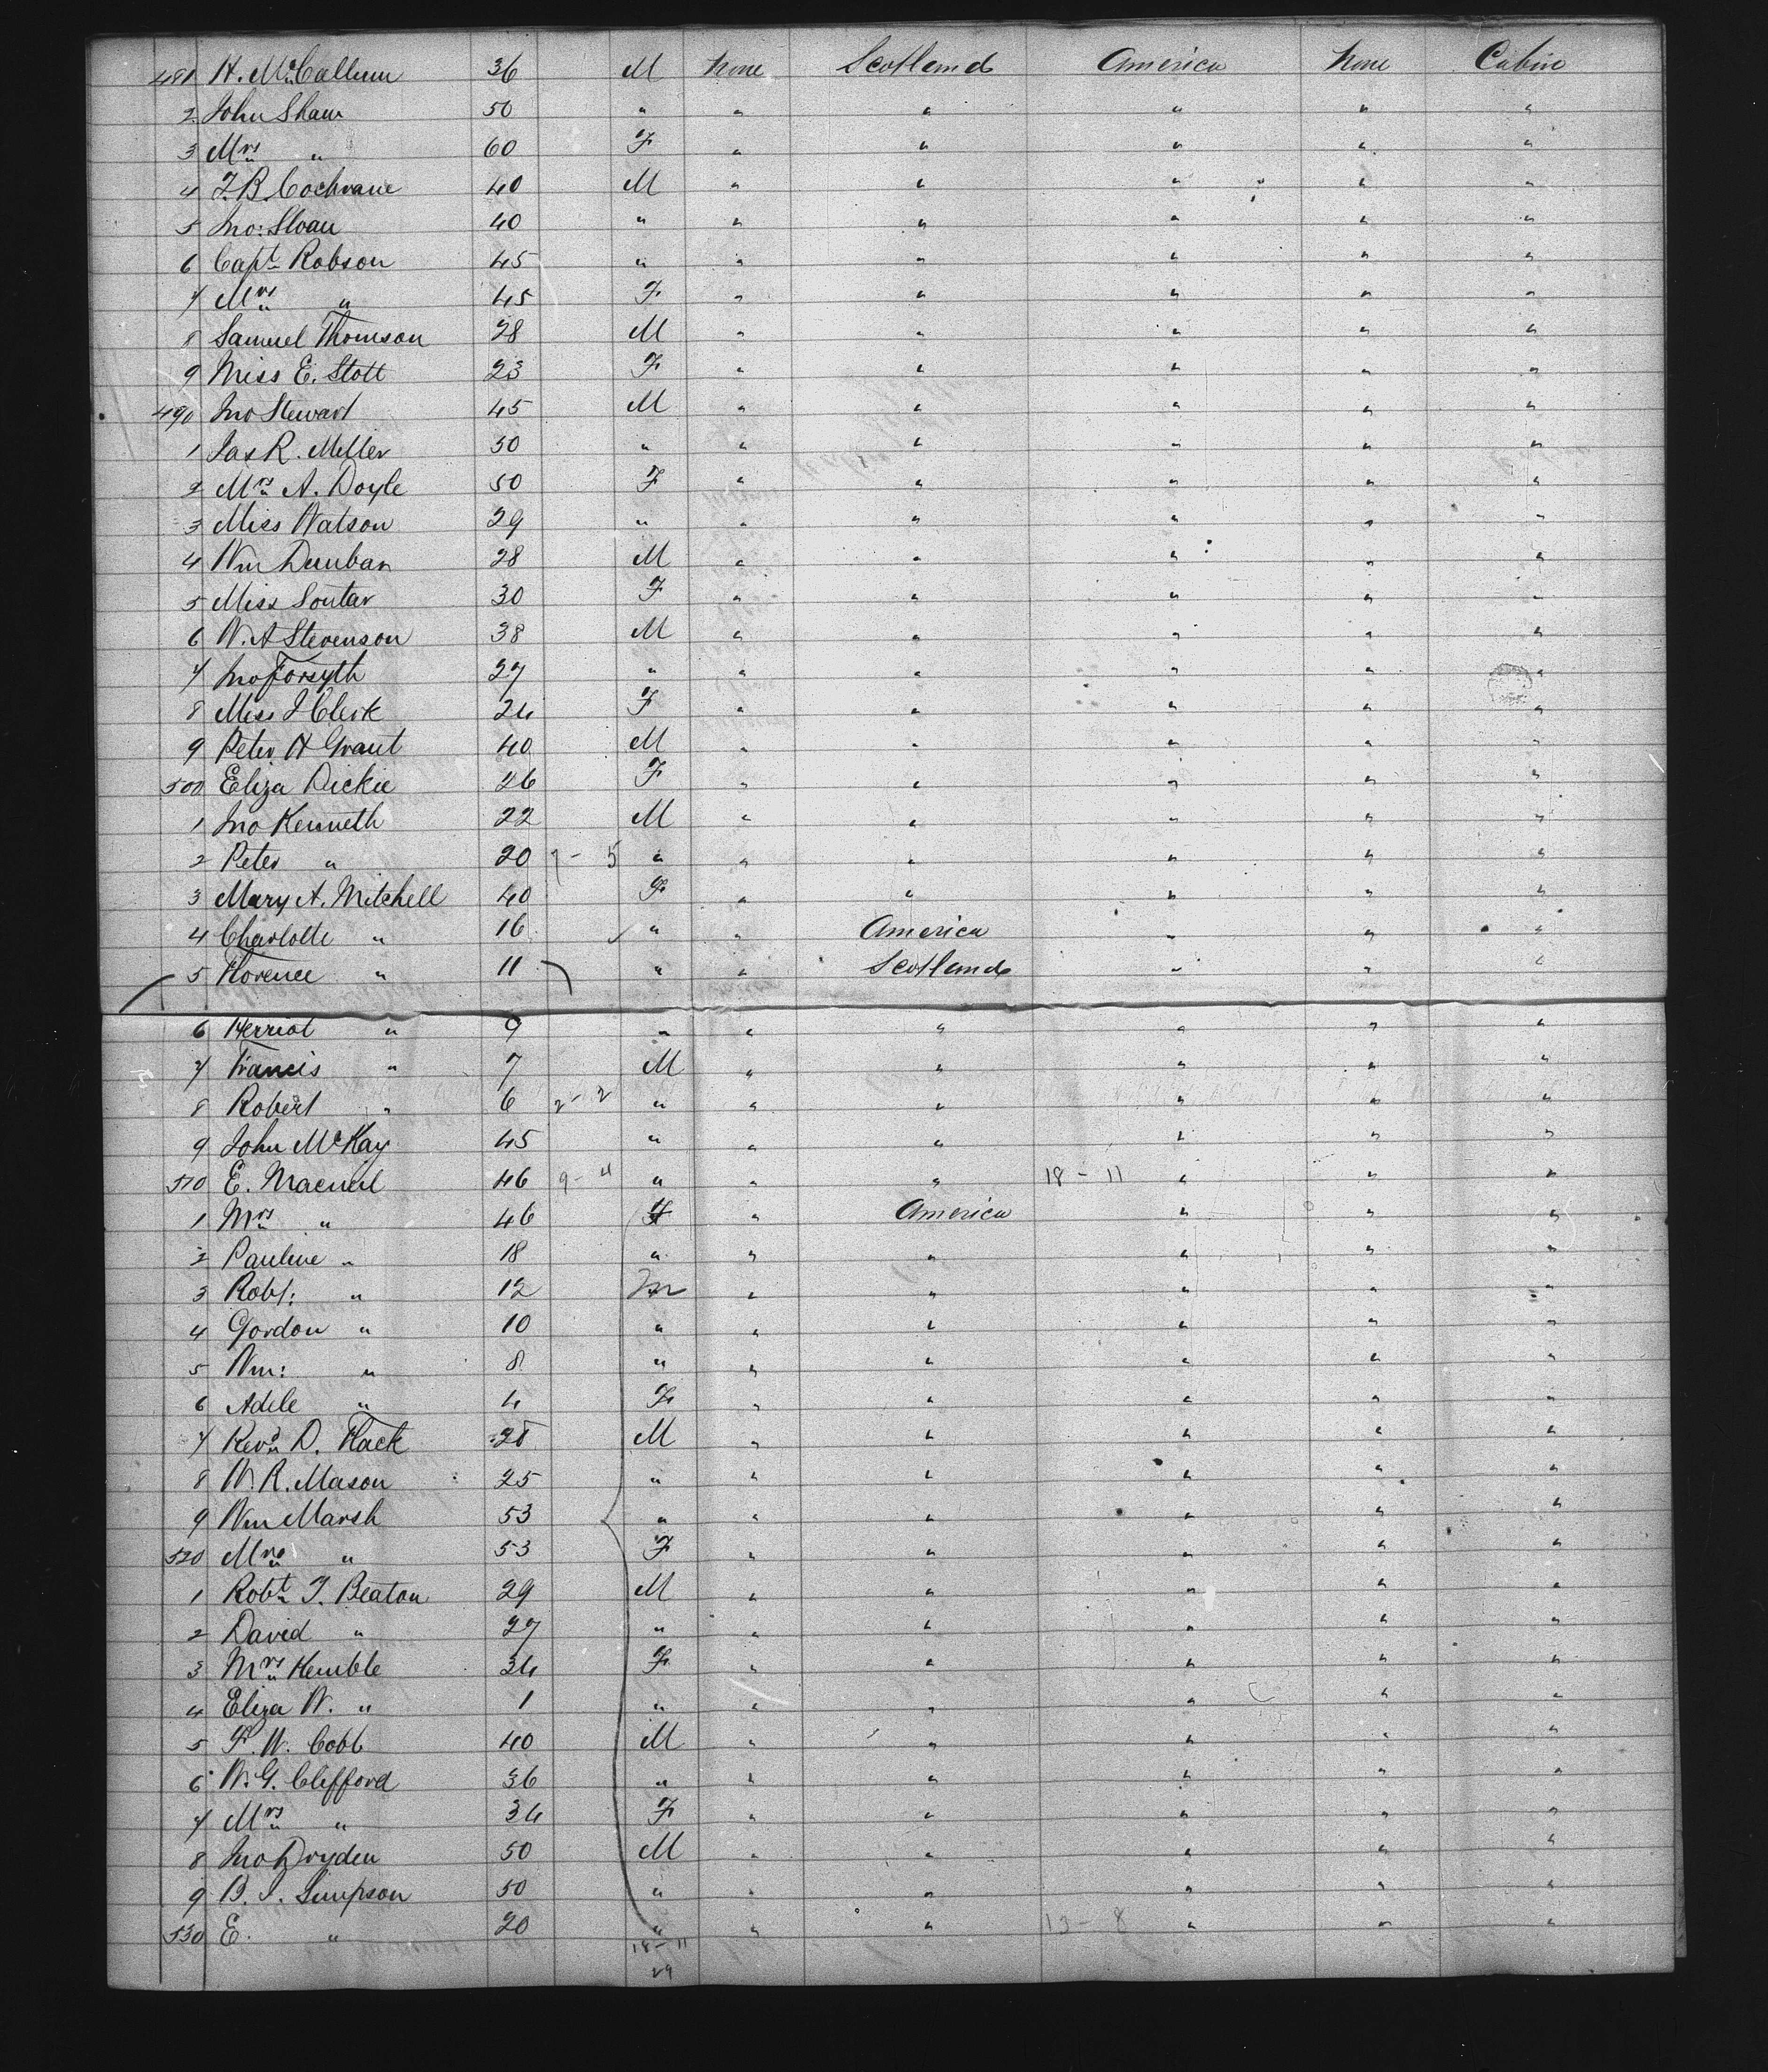 481 H. McCallum 36 M None Scotland America None Cabin
2 John Shaw 50 " " " " " "
3 Mrs " 60 F " " " " "
4 T.B. Cochrane 40 M " " " " "
5 Jno: Sloan 40 " " " " " "
6 Capt Robson 45 " " " " " "
7 Mrs " 45 F " " " " "
8 Samuel Thomson 28 M " " " " "
9 Miss E. Stott 23 F " " " " "
490 Jno Stewart 45 M " " " " "
1 Jas R. Miller 50 " " " " " "
2 Mrs A. Doyle 50 F " " " " "
3 Miss Watson 29 " " " " " "
4 Wm Dunbar 28 M " " " " "
5 Miss Soutar 30 F " " " " "
6 W. A Stevenson 38 M " " " " "
7 Jno Forsyth 27 " " " " " "
8 Miss J Clerk 24 F " " " " "
9 Peter H Grant 40 M " " " " "
500 Eliza Dickie 26 F " " " " "
1 Jno Kenneth 22 M " " " " "
2 Peter " 20 7 - 5 " " " " " "
3 Mary A. Mitchell 40 F " " " " "
4 Charlotte " 16 " " America " " "
5 Florence " 11 " " Scotland " " "
6 Herriot " 9 " " " " " "
7 Francis " 7 M " " " " "
8 Robert " 6 2 - 2 " " " " " "
9 John McKay 45 " " " " " "
510 E. Macneil 46 9 - 4 " " " 18 - 11 " " "
1 Mrs " 46 F " America " " "
2 Pauline " 18 " " " " " "
3 Robt: " 12 M " " " " "
4 Gordon " 10 " " " " " "
5 Wm: " 8 " " " " " "
6 Adele " 4 F " " " " "
7 Revd D. Flack 28 M " " " " "
8 W. R. Mason 25 " " " " " "
9 Wm Marsh 53 " " " " " "
520 Mrs " 53 F " " " " "
1 Robt T. Beaton 29 M " " " " "
2 David " 27 " " " " " "
3 Mrs Kemble 34 F " " " " "
4 Eliza W. " 1 " " " " " "
5 F. W. Cobb 40 M " " " " "
6 W. G. Clifford 36 " " " " " "
7 Mrs " 34 F " " " " "
8 Jno Dryden 50 M " " " " "
9 B. J. Simpson 50 " " " " " "
530 E. " 20 " " " 13 - 8 " " "
18 - 11
29